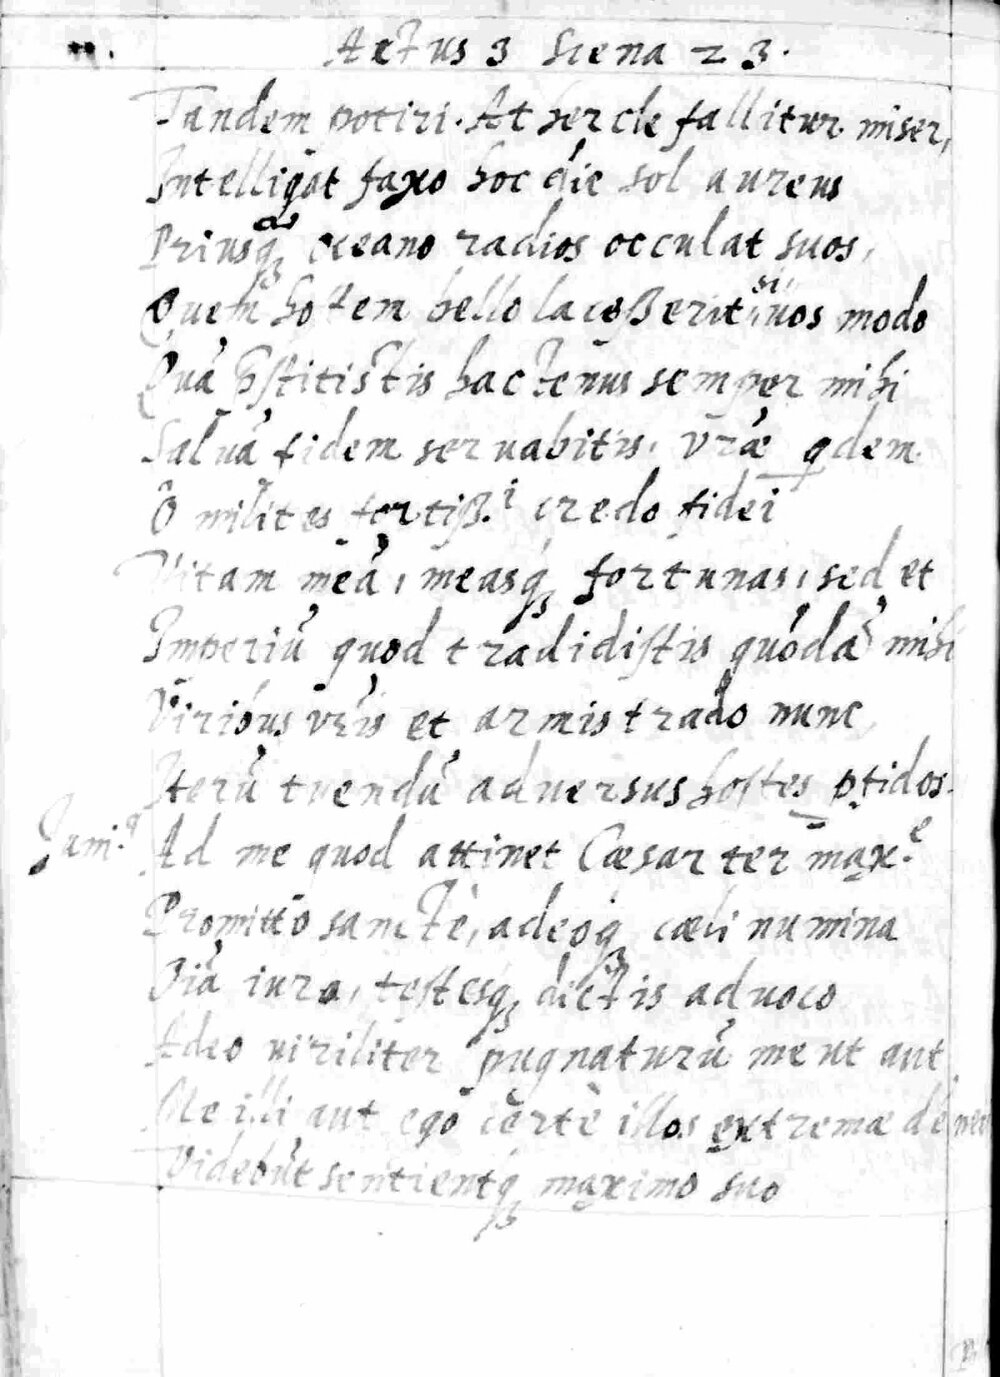 Actus 3 Scena 2 3.
Tandem potiri. At hercle fallitur miser,
Intelligat faxo hoc die sol aureus
Priusq̃ oceano radios occulat suos,
Quem hostem bello laceßerit, si uos modo
Quã p̃stitistis hactenus semper mihi
Saluã fidem seruabitis. vr̃æ qdem
O milites fortiß.i credo fidei
Vitam meã, measq; fortunas, sed et
Imperiũ quod tradidistis quõdã mihi
Viribus vr̃is et armis trado nunc
Iterũ tuendũ aduersus hostes ꝑfidos.
Ad me quod attinet Cæsar ter max.e
Promitto sanctè, adeoq; cæli numina
Diũ iura, testesq; dictis aduoco
Adeo uiriliter pugnaturũ me ut aut
Me illi aut ego certè illos extremæ
Videbũt sentientq; maximo suo